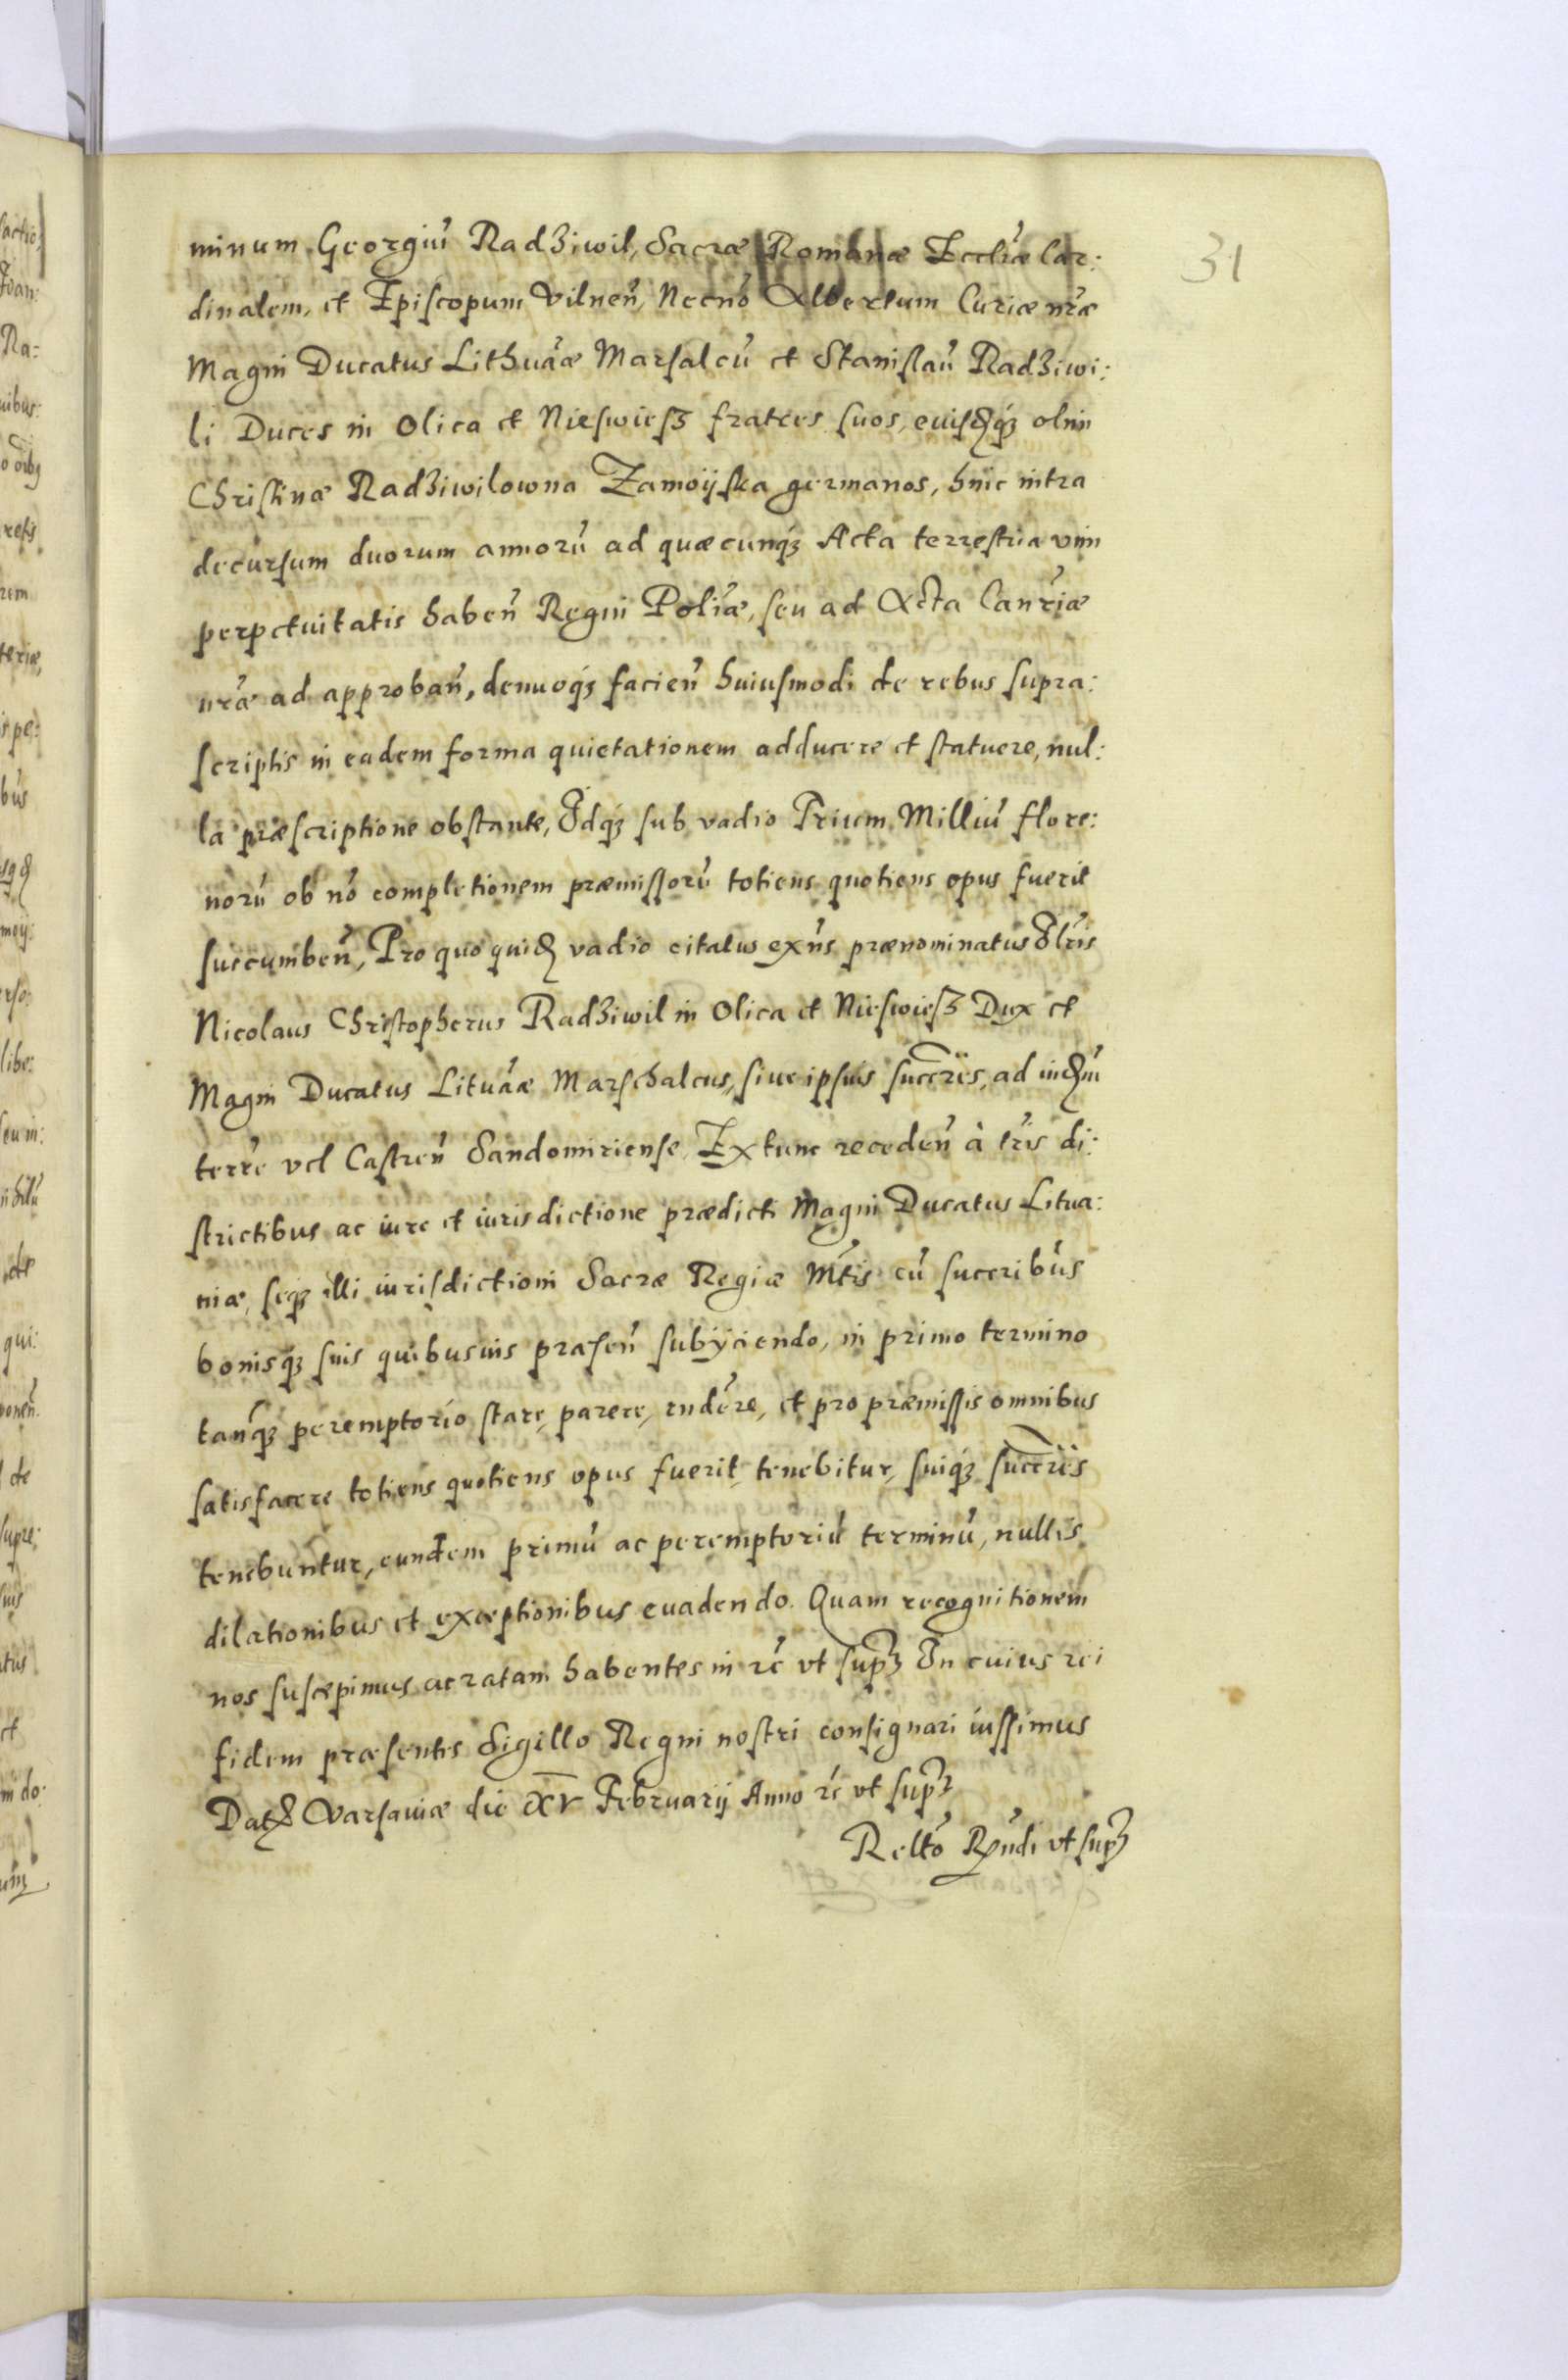 31
minum Georgiũ Radziwil, Sacræ Romanæ Eccliæ Car:
dinalem, et Episcopum Vilneñ, Necnõ Albertum Curiæ nræ
Magni Ducatus Lithuãæ Marsalcũ et Stanislaũ Radziwi:
li Duces in Olica et Nieswiesz fratres suos, eiusdq́ꝫ olim
Christinæ Radziwilowna Zamoijska germanos, hinc intra
decursum duorum annorũ ad quæcunq́ꝫ Acta terrestria vim
perpetuitatis habeñ Regni Poliæ, seu ad Acta Canriæ
nræ ad approbañ, denuoq́ꝫ facieñ huiusmodi de rebus supra:
scriptis in eadem forma quietationem adducere et statuere, nul:
la præscriptione obstante, Idq́ꝫ sub vadio Trium Milliũ flore:
norũ ob nõ completionem præmissorũ totiens quotiens opus fuerit
succumbeñ, Pro quo quid vadio citatus exñs prænominatus Illris
Nicolaus Christopherus Radziwil in Olica et Nieswiesz Dux et
Magni Ducatus Lituãæ Marschalcus, siue ipsius succrẽs, ad iudm
terrẽ vel Castreñ Sandomiriense, Extunc recedeñ à trĩs di:
strictibus ac iure et iurisdictione prædicti Magni Ducatus Litua:
niæ, seq́ꝫ illi iurisdictioni Sacræ Regiæ Mtis cũ succribus
bonisq́ꝫ suis quibusuis præseñ subijciendo, in primo termino
tanq́ꝫ peremptorio stare, parere, rndẽre, et pro præmissis omnibus
satisfacere totiens quotiens opus fuerit, tenebitur, suiq́ꝫ succrẽs
tenebuntur, eundem primũ ac peremptoriũ terminũ, nullis
dilationibus et exceptionibus euadendo. Quam recognitionem
nos suscepimus ac ratam habentes in rc̃ vt supꝫ In cuius rei
fidem præsentes Sigillo Regni nostri consignari iussimus
Datt Varsauiæ die XV Februarij Anno rc̃ vt supꝫ
Reltõ Rndi vt supꝫ